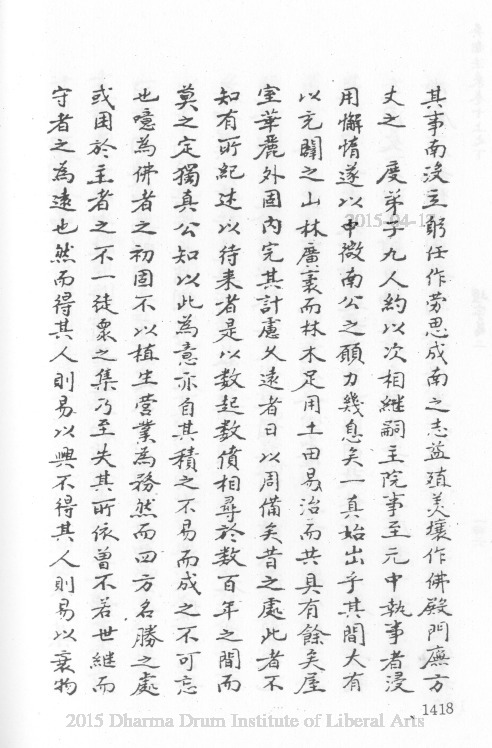 其事南沒立躬任作勞思成南之志益殖美壤作佛殿門廡方
丈之　度弟子九人約以次相繼嗣主院事至元中執事者浸
用懈惰遂以中微南公之願力幾息矣一真始出乎其間大有
以充闢之山林廣袤而林木足用土田易治而共具有餘矣屋
室華麗外固內完其計慮久遠者日以周備矣昔之處此者不
知有所紀述以待來者是以數起數僨相尋於數百年之間而
莫之定獨真公知以此為意亦自其積之不易而成之不可忘
也噫為佛者之初固不以植生營業為務然而四方名勝之處
或困於主者之不一徒眾之集乃至失其所依曾不若世繼而
守者之為遠也然而得其人則易以興不得其人則易以衰物
2015-04-1
1418
2015 Dharma Drum Institute of Liberal Arts